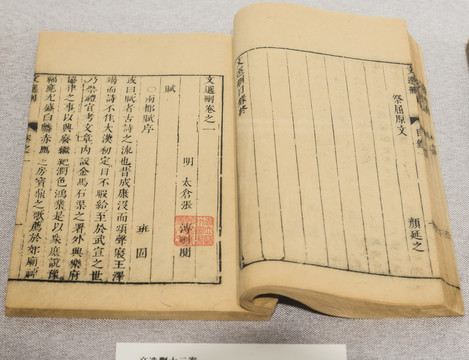 文選刪 目錄
祭屈原文 顏延之
文選刪目錄終
文選刪卷之一
明 太倉張溥刪閱
賦
○兩都賦序 班固
或曰賦者古詩之流也昔成康沒而頌聲寢王澤
竭而詩不作大漢初定日不暇給至於武宣之世
乃崇禮官考文章內設金馬石渠之署外興樂府
協律之事以興廢繼絕潤色鴻業是以衆庶說豫
福應尤盛白麟赤鴈芝房寶鼎之歌薦於郊廟
文選刪 卷之一